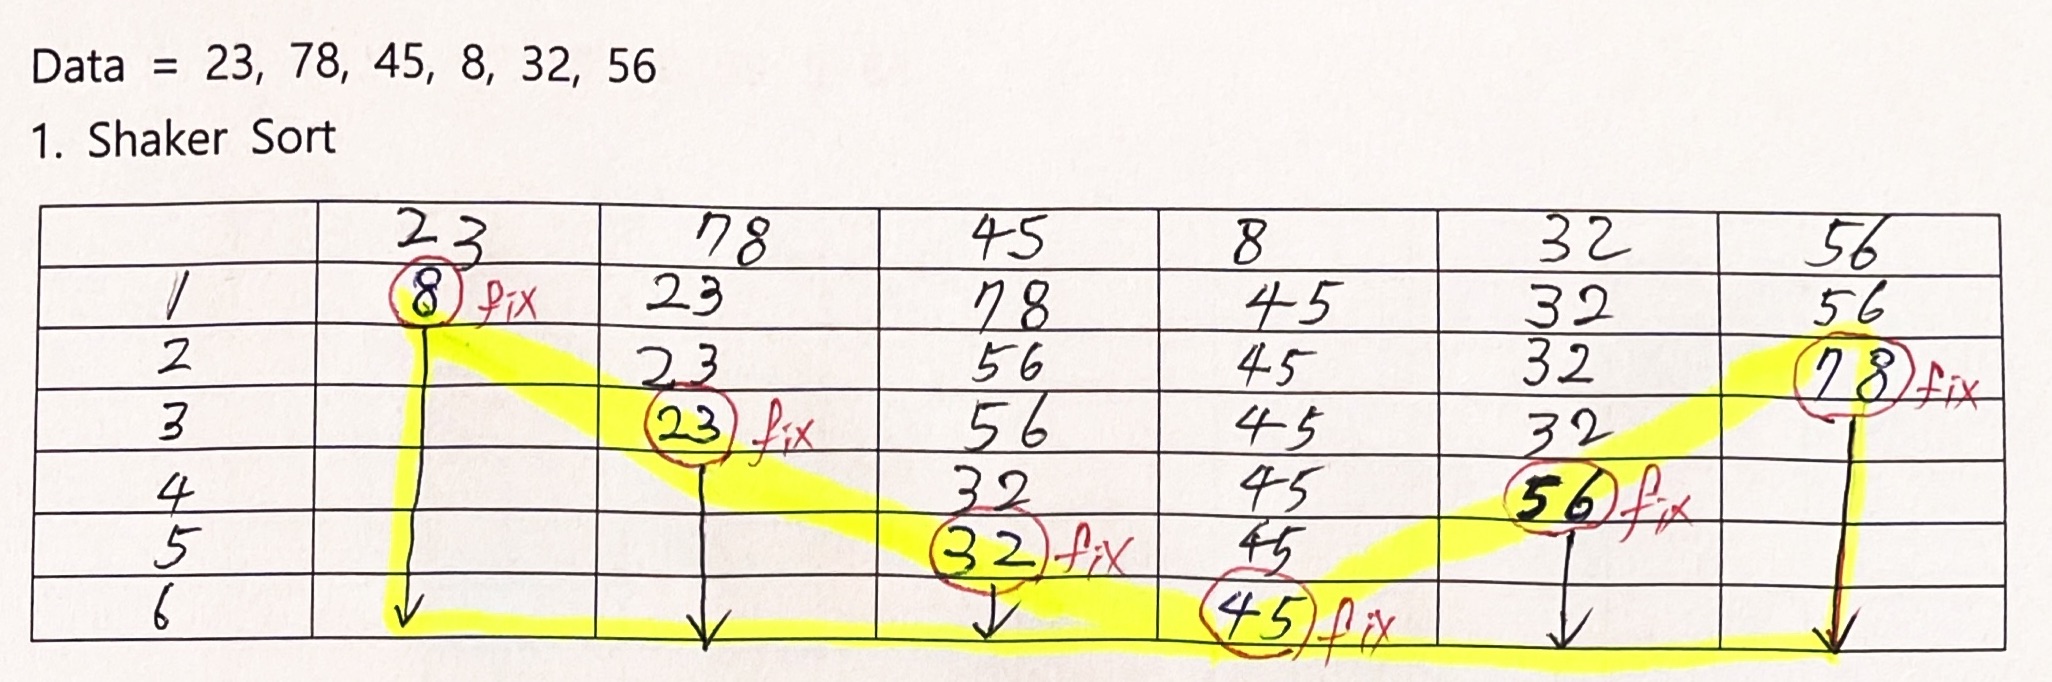 Data = 23, 78, 45, 8, 32, 56
1. Shaker Sort
23 78 45 8 32 56
1 8 fix 23 78 45 32 56
2 23 56 45 32 78 fix
3 23 fix 56 45 32
4 32 45 56 fix
5 32 fix 45
6 45 fix